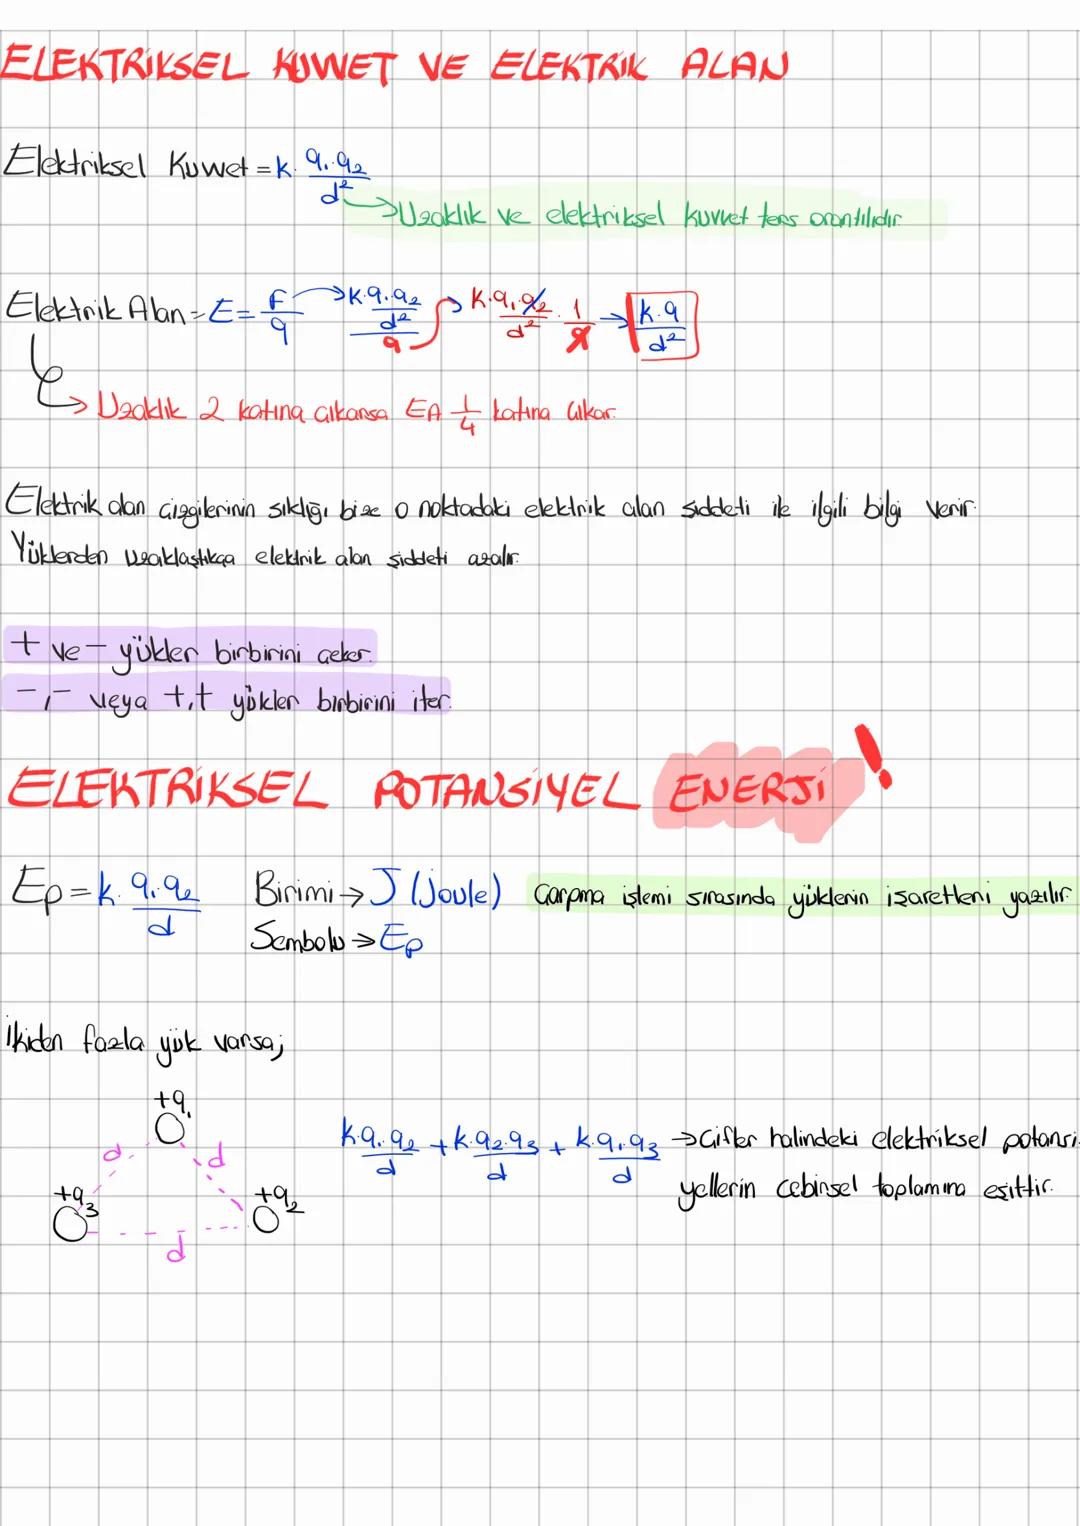 ELEKTRİKSEL KUVVET VE ELEKTRİK ALAN
Elektriksel Kuvvet = k. q₁.q₂ / d²
→ Uzaklık ve elektriksel kuvvet ters orantılıdır.
Elektrik Alan = E = F / q → k.q₁.q₂ / d² / q → k.q₁.q₂ / d² . 1 / q → k.q / d²
→ Uzaklık 2 katına çıkarsa EA 1/4 katına çıkar.
Elektrik alan çizgilerinin sıklığı bize o noktadaki elektrik alan şiddeti ile ilgili bilgi verir.
Yüklerden uzaklaştıkça elektrik alan şiddeti azalır.
+ ve - yükler birbirini çeker.
-,- veya +,+ yükler birbirini iter.
ELEKTRİKSEL POTANSİYEL ENERJİ !
Ep = k. q₁.q₂ / d Birimi → J (Joule) Çarpma işlemi sırasında yüklerin işaretleri yazılır.
Sembolü → Ep
İkiden fazla yük varsa;
+q₁
d d
+q₃ +q₂
d
k.q₁.q₂ / d + k.q₂.q₃ / d + k.q₁.q₃ / d → Çiftler halindeki elektriksel potansi-
yellerin cebirsel toplamına eşittir.